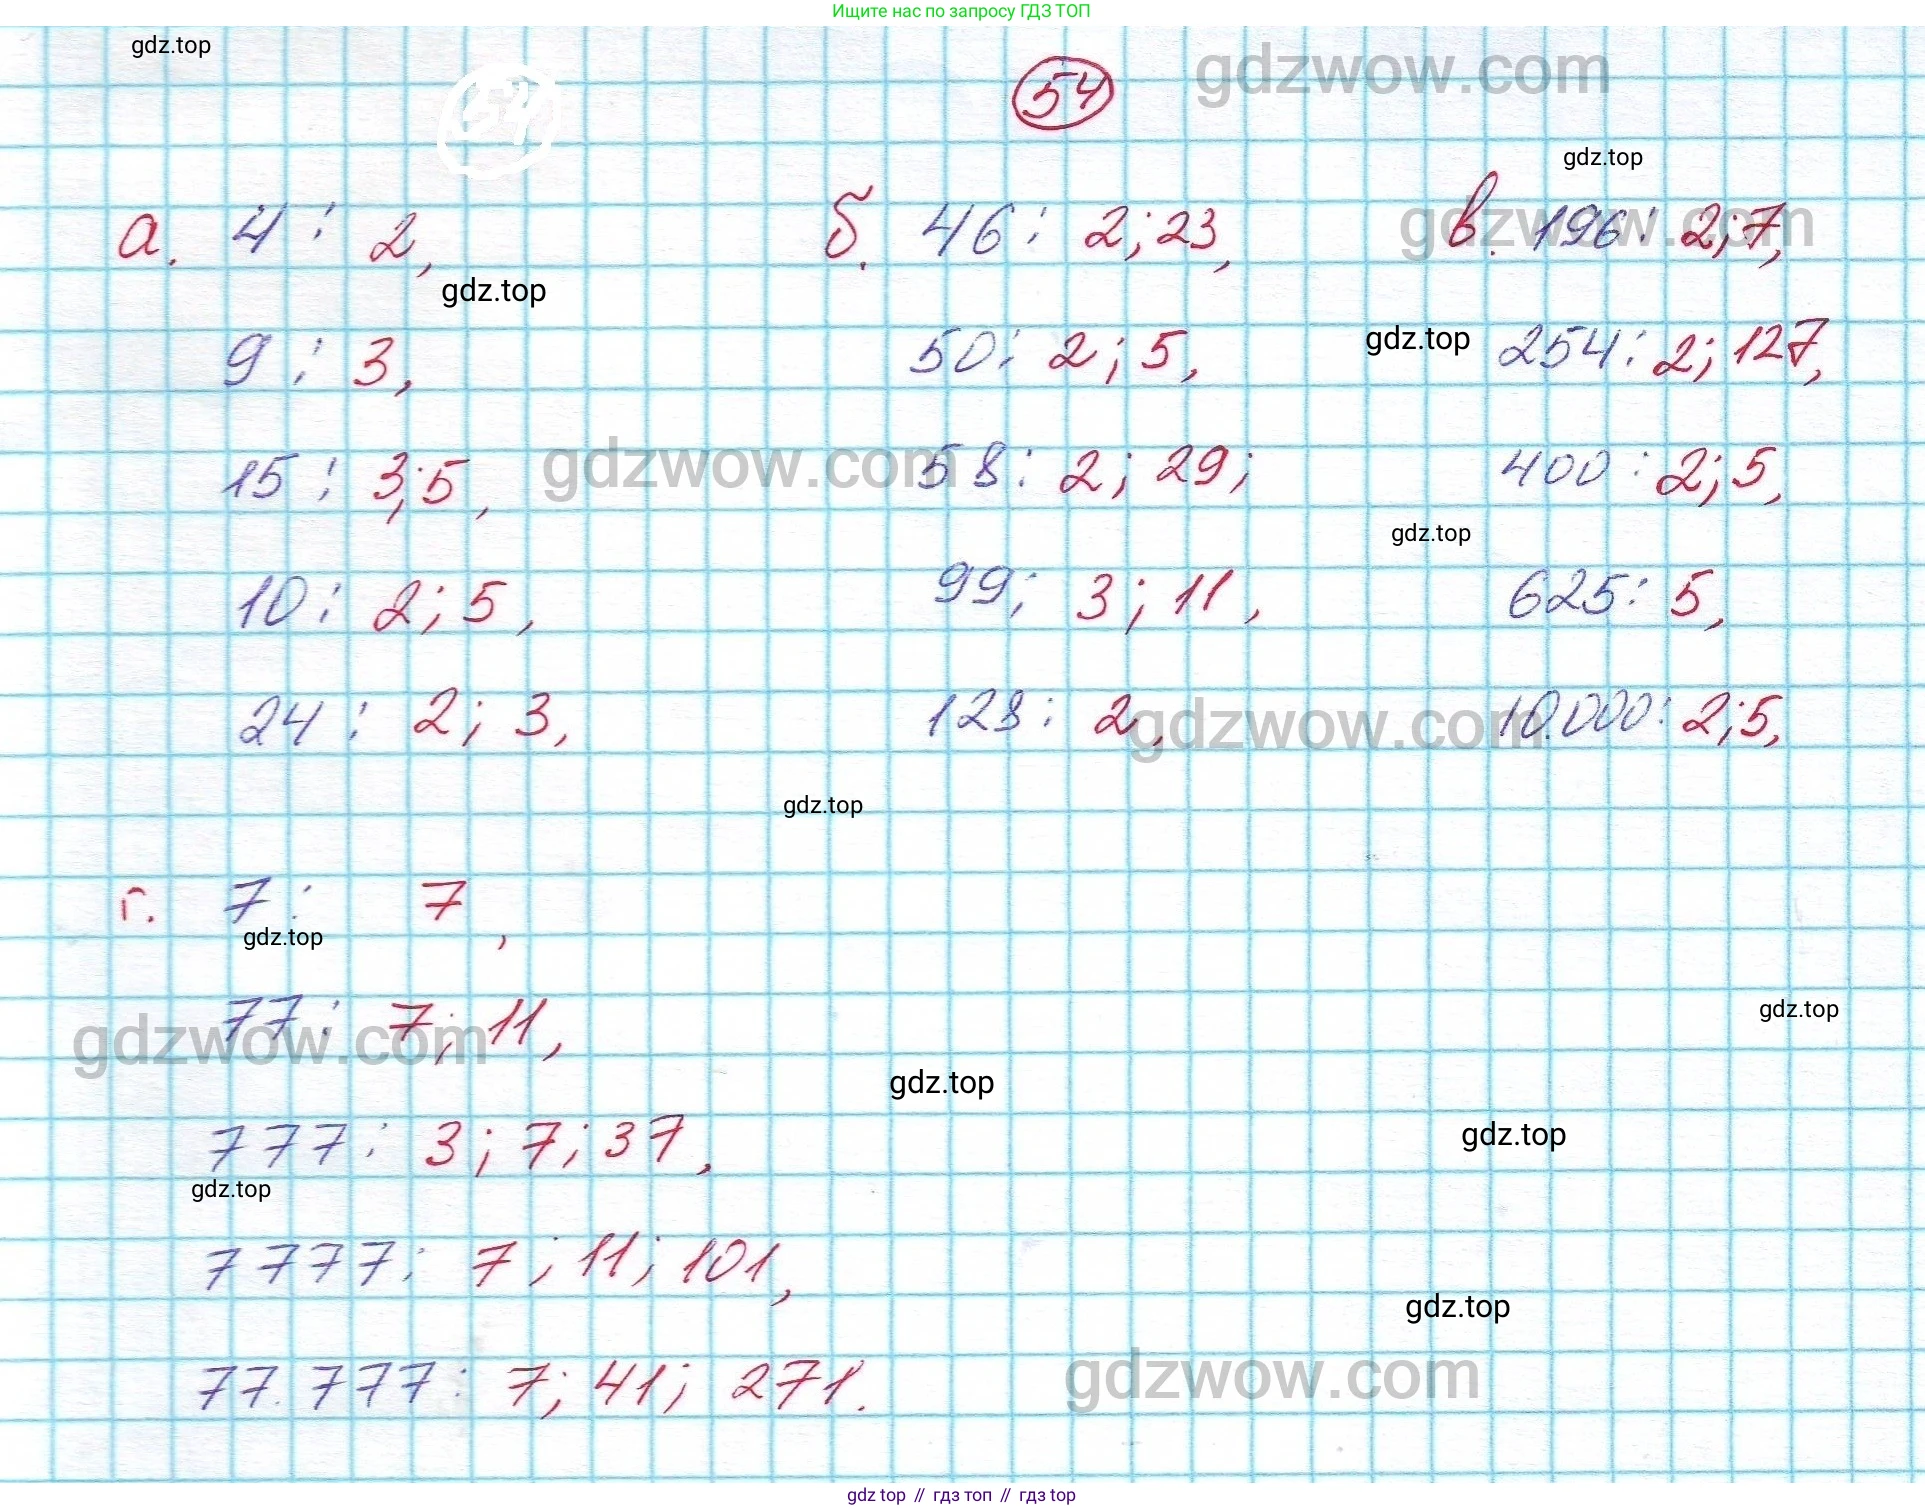 Ищите нас по запросу ГДЗ ТОП
gdz.top
54
54
gdzwow.com
gdz.top
а. 4: 2,
б. 46: 2; 23,
в. 196: 2; 7,
gdzwow.com
gdz.top
9: 3,
50: 2; 5,
gdz.top
254: 2; 127,
15: 3; 5,
gdzwow.com
58: 2; 29;
400: 2; 5,
gdz.top
10: 2; 5,
99: 3; 11,
625: 5,
24: 2; 3,
128: 2,
gdzwow.com
10.000: 2; 5,
gdz.top
г. 7: 7,
gdz.top
77: 7; 11,
gdzwow.com
gdz.top
gdz.top
777: 3; 7; 37,
gdz.top
gdz.top
7777: 7; 11; 101,
gdz.top
77.777: 7; 41; 271.
gdzwow.com
gdz top // гдз топ // гдз top